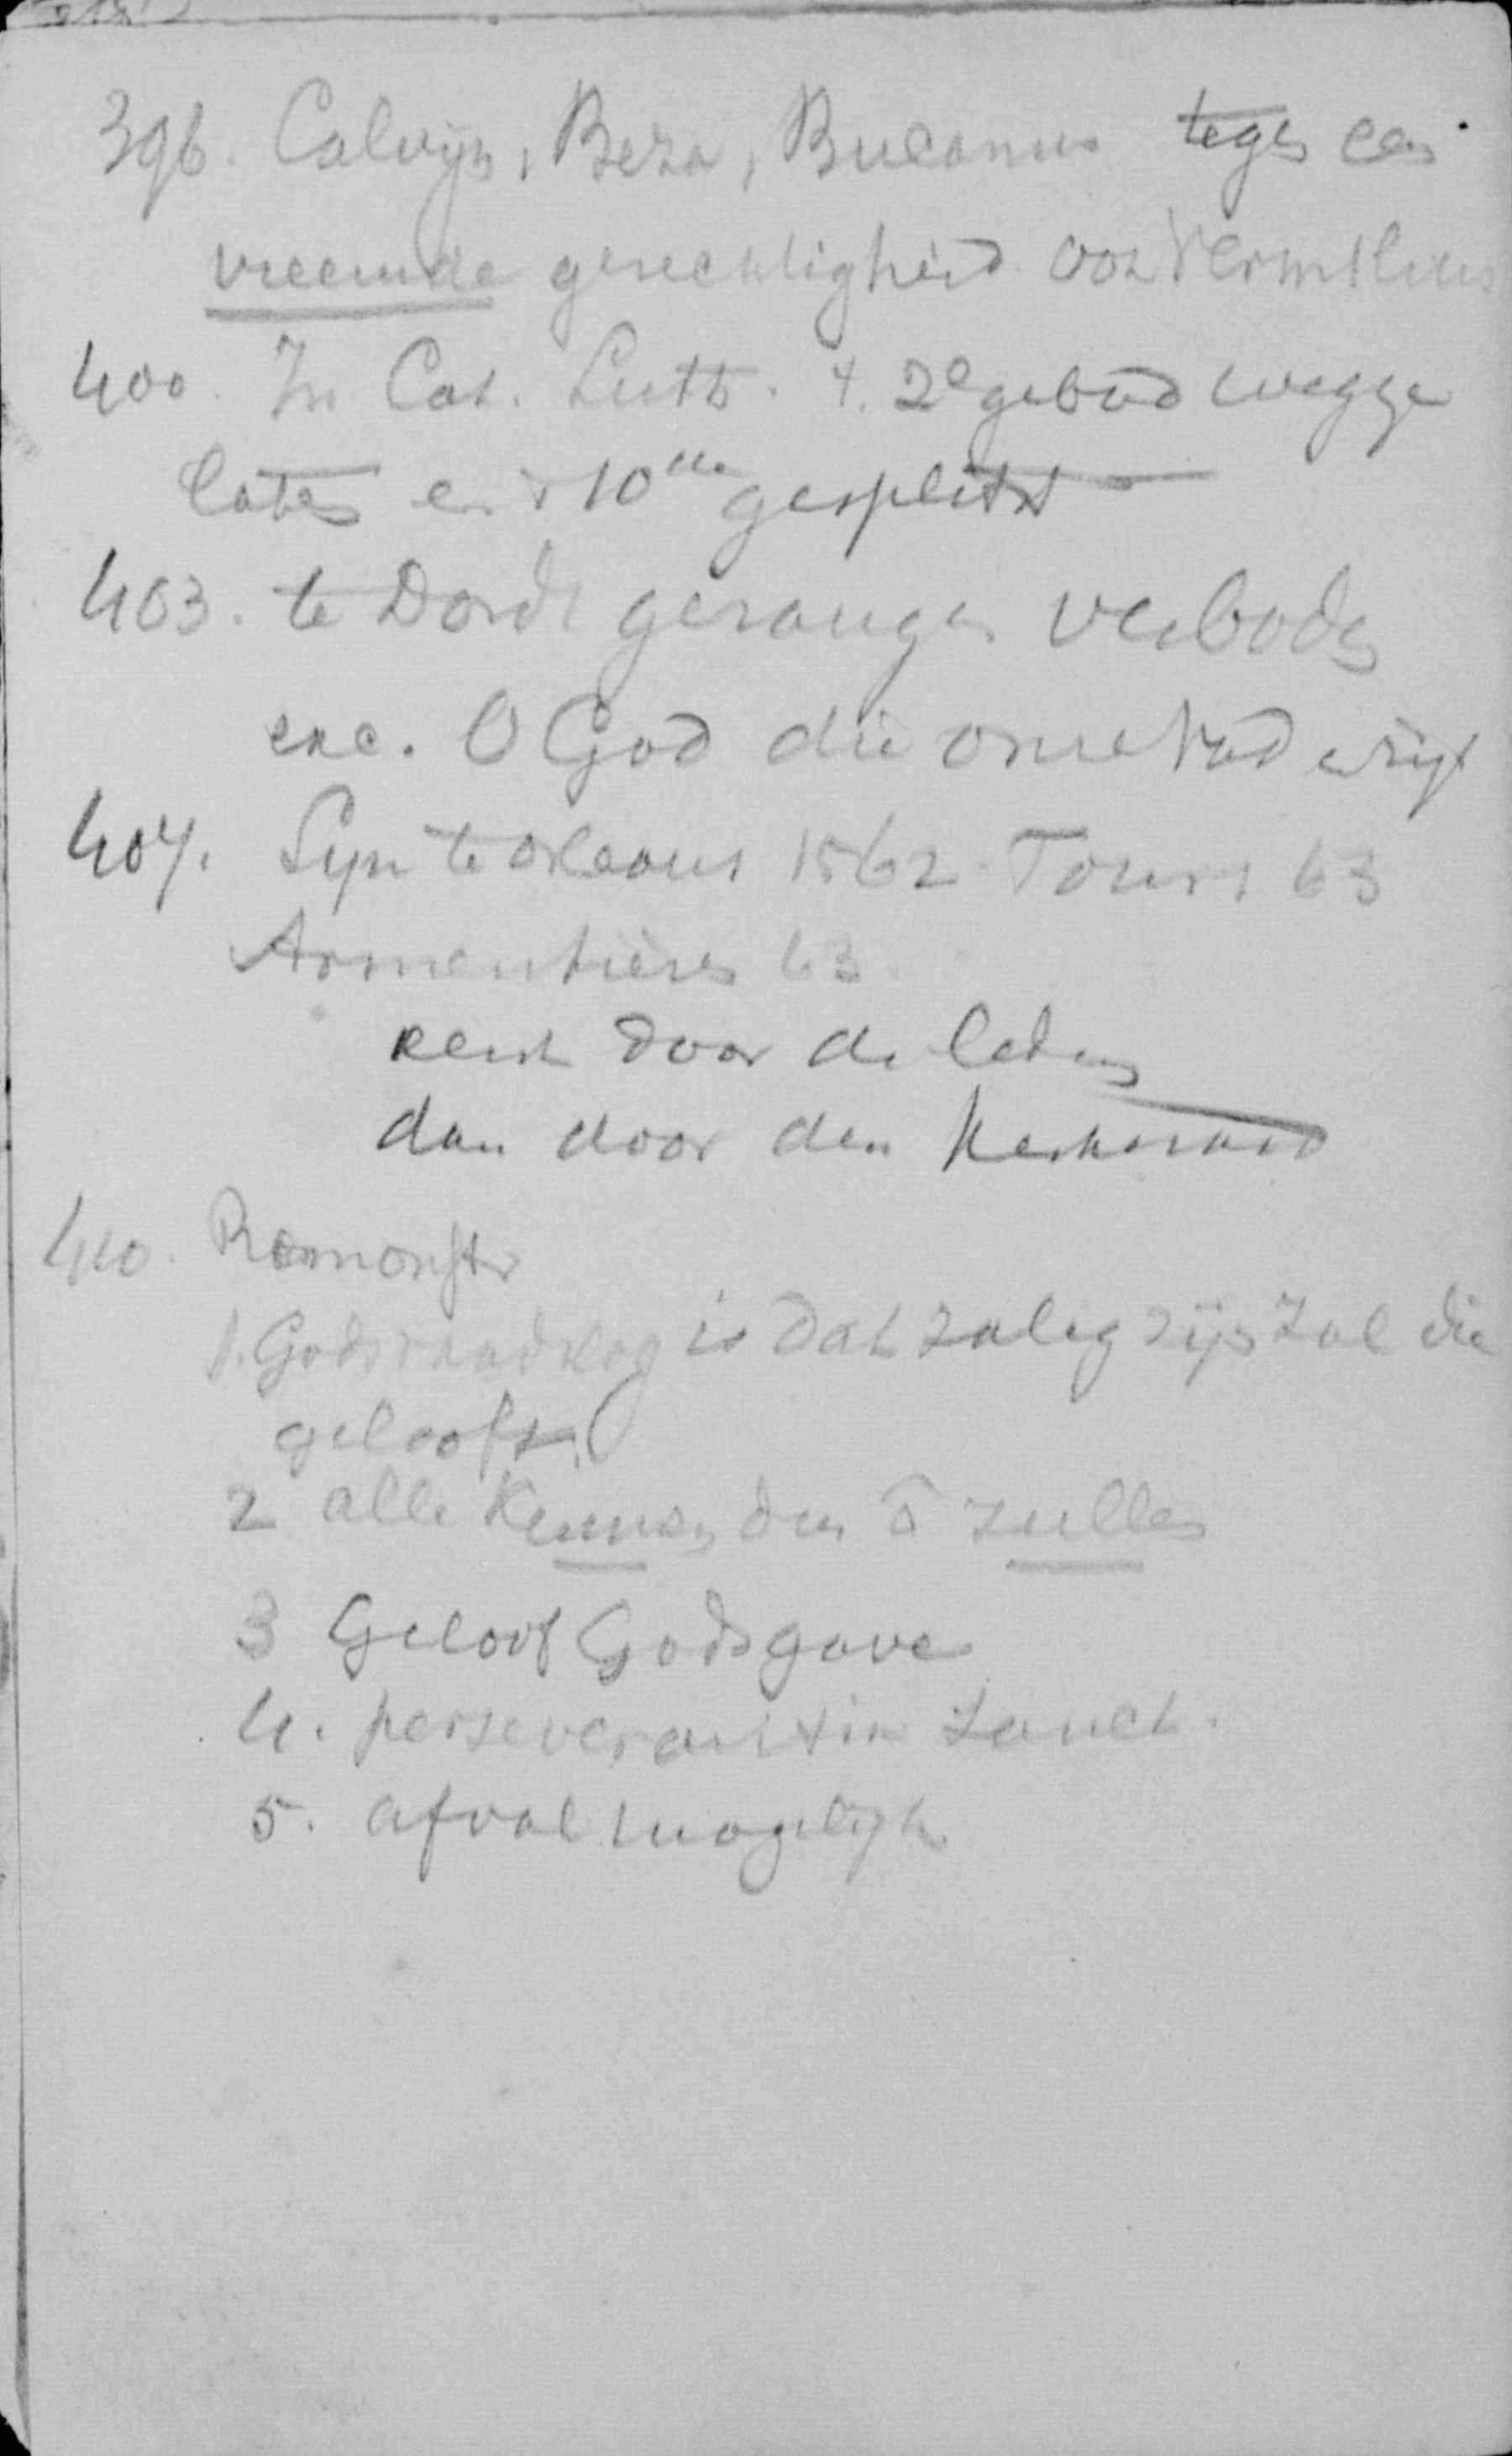 396. Calvijn, Beza, Bucanus tegen een
vreemde gerechtigheid
400. In Cat. Luth. t. 2e gebod wegge
laten en 10de gesplitst —
403. te Dordt gezangen verboden
exc. O God die onse Vad
407. Syn te Orleans 1562 Tours 63
Armentières 63
eerst door de leden
dan door den Kerkeraad
410. Remonstr
1. Gods raadslag is dat zalig zijn zal die
gelooft
2 alle kunnen den zullen
3 Geloof Gods gave
4. perseverant in sanct.
5. afval mogelijk